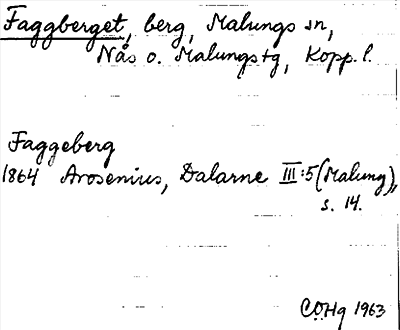 Faggberget, berg, Malungs sn,
Nås o. Malungs tg, Kopp. l.
Faggeberg
1864 Arosenius, Dalarne III:5 (Malung),
s. 14.
CÖHg 1963